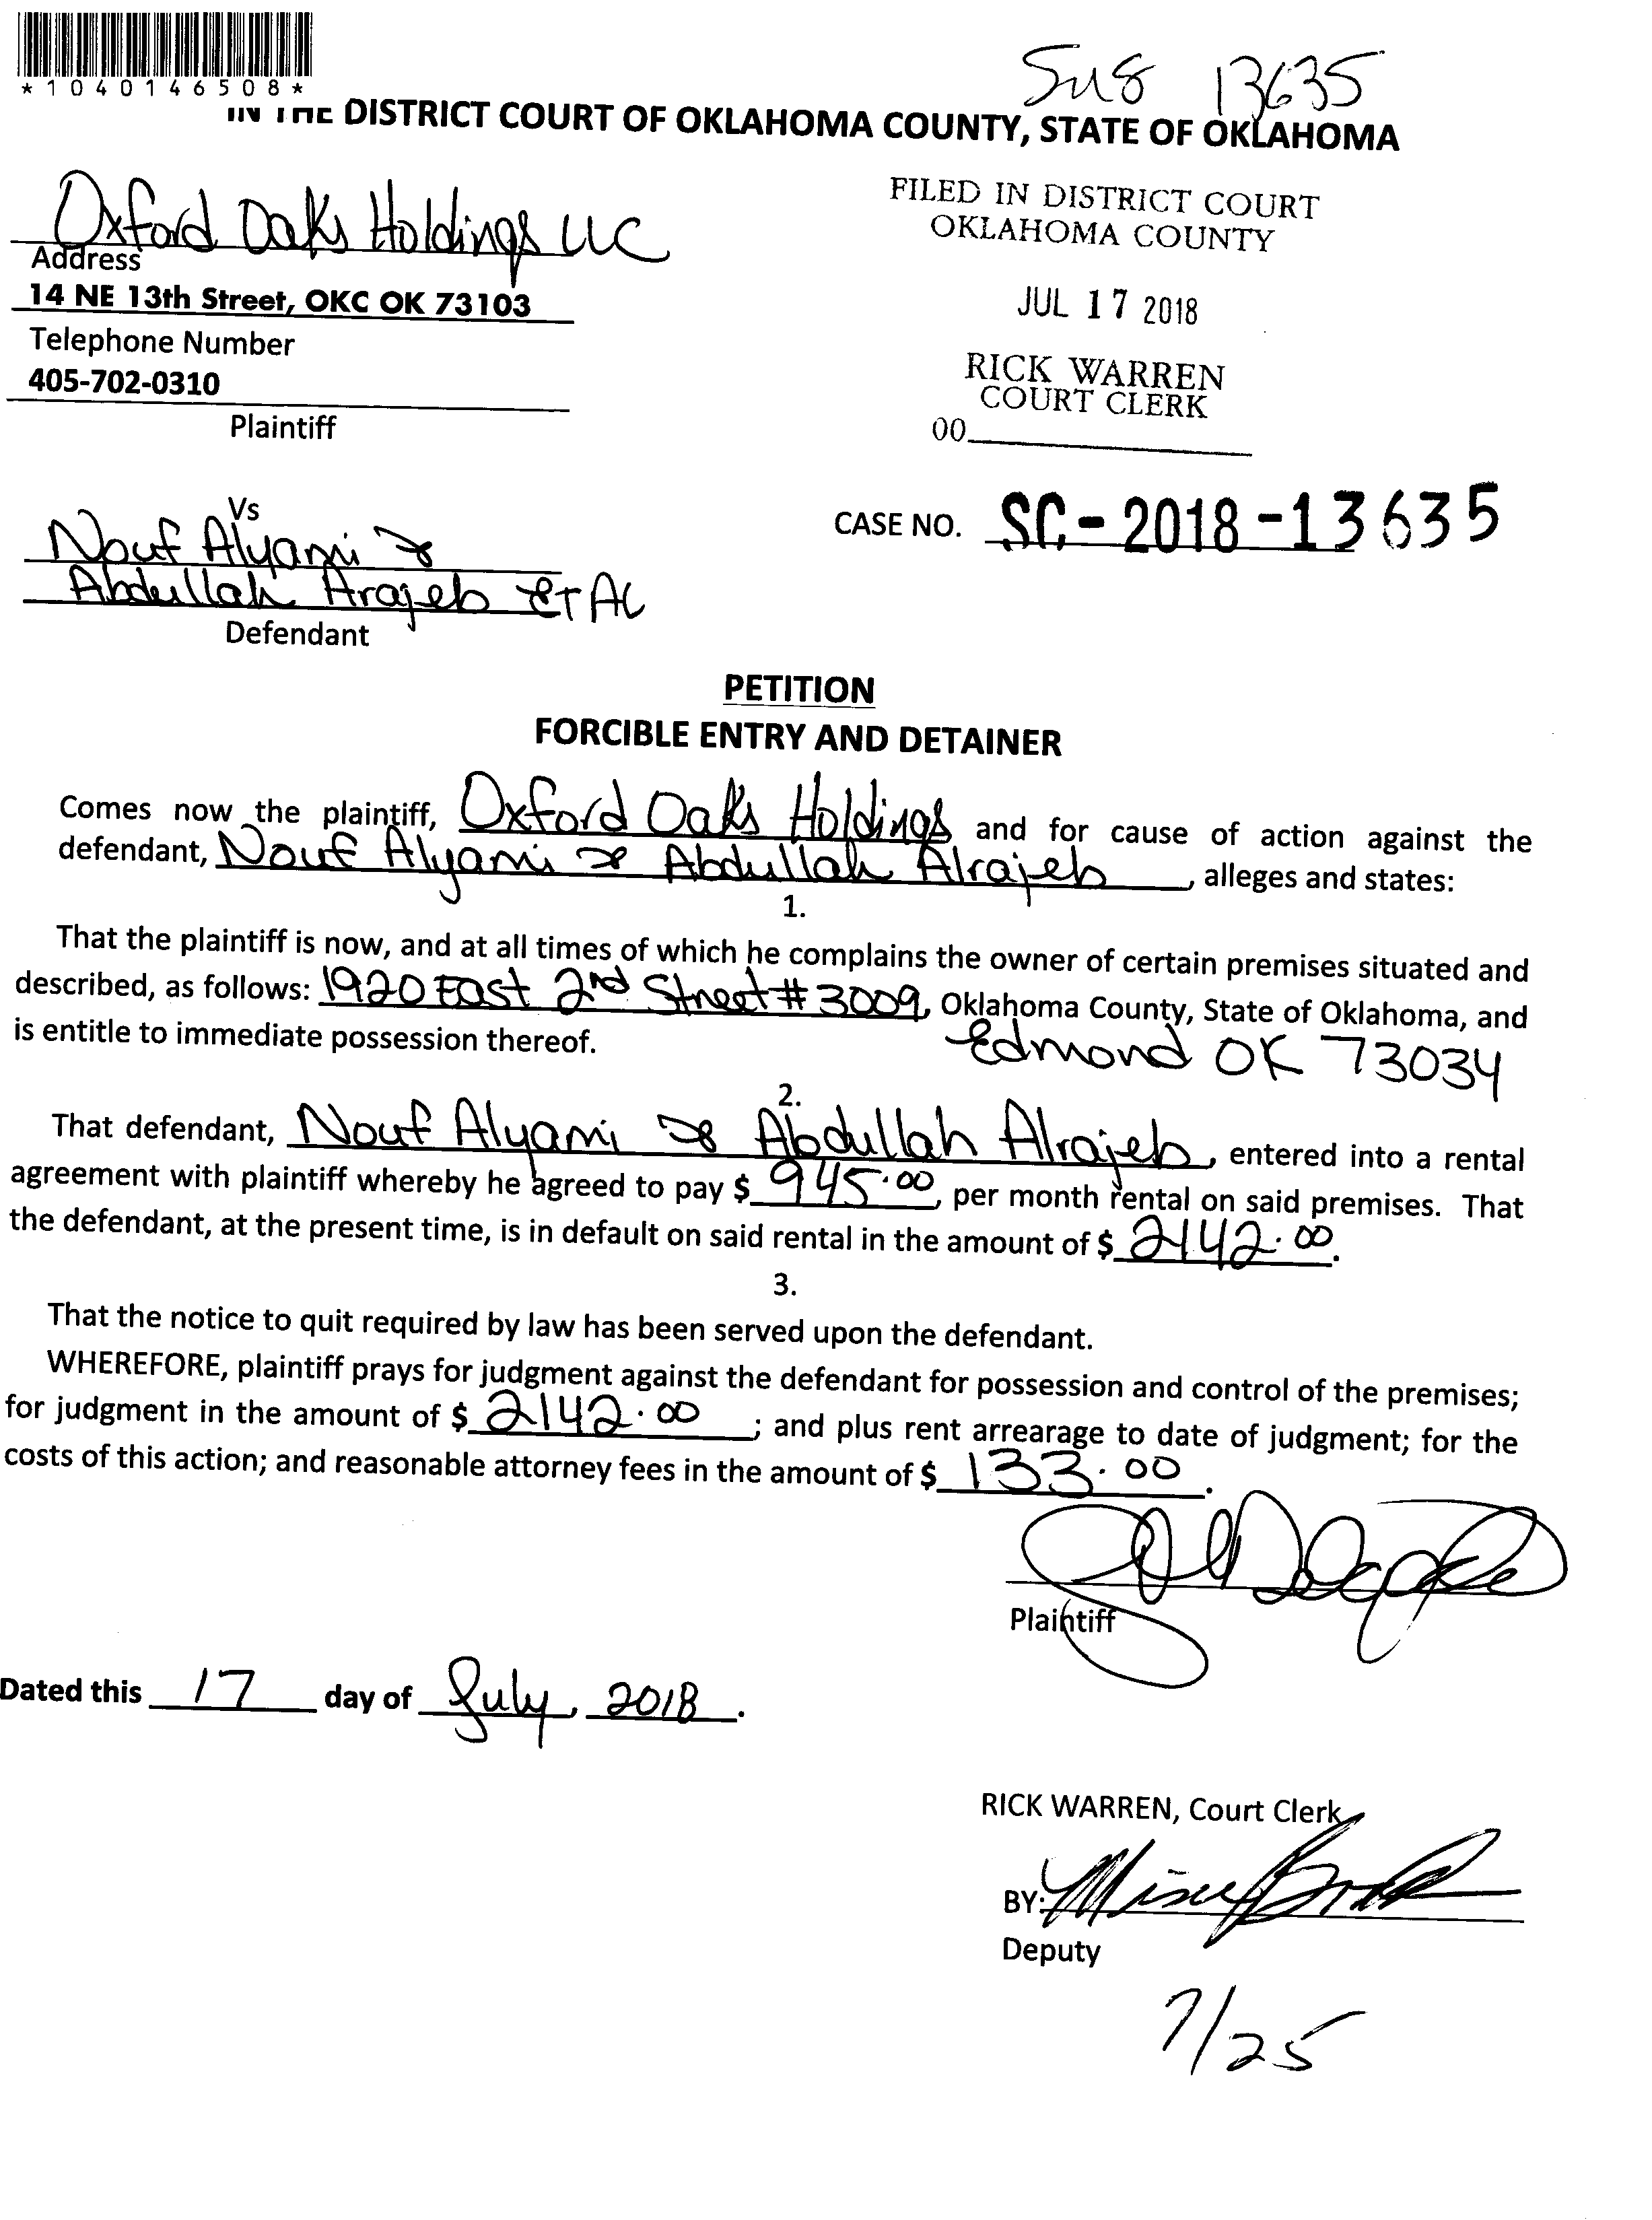 *1040146508*
13635
IN THE DISTRICT COURT OF OKLAHOMA COUNTY, STATE OF OKLAHOMA
Oxford Oaks Holdings LLC
Address
14 NE 13th Street, OKC OK 73103
Telephone Number
405-702-0310
Plaintiff
FILED IN DISTRICT COURT
OKLAHOMA COUNTY
JUL 17 2018
RICK WARREN
COURT CLERK
00
Vs
Nouf Alyami &
Abdullah Arajeb ET AL
Defendant
CASE NO. SC-2018-13635
PETITION
FORCIBLE ENTRY AND DETAINER
Comes now the plaintiff, Oxford Oaks Holdings and for cause of action against the
defendant, Nouf Alyami & Abdullah Alrajeb, alleges and states:
1.
That the plaintiff is now, and at all times of which he complains the owner of certain premises situated and
described, as follows: 1920 East 2nd Street # 3009, Oklahoma County, State of Oklahoma, and
is entitle to immediate possession thereof. Edmond OK 73034
2.
That defendant, Nouf Alyami & Abdullah Alrajeb, entered into a rental
agreement with plaintiff whereby he agreed to pay $ 945.00, per month rental on said premises. That
the defendant, at the present time, is in default on said rental in the amount of $ 2142.00.
3.
That the notice to quit required by law has been served upon the defendant.
WHEREFORE, plaintiff prays for judgment against the defendant for possession and control of the premises;
for judgment in the amount of $ 2142.00 ; and plus rent arrearage to date of judgment; for the
costs of this action; and reasonable attorney fees in the amount of $ 133.00.
Plaintiff
Dated this 17 day of July, 2018.
RICK WARREN, Court Clerk
BY:
Deputy
7/25